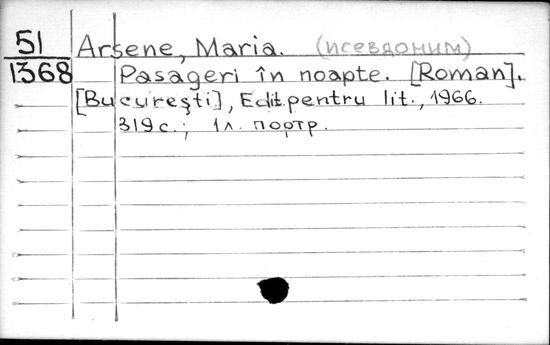 51 Arsene, Maria. (псевдоним)
1368 Pasageri în noapte. [Roman].
[Bucureşti], Edit. pentru lit., 1966.
319 с.; 1 л. портр.